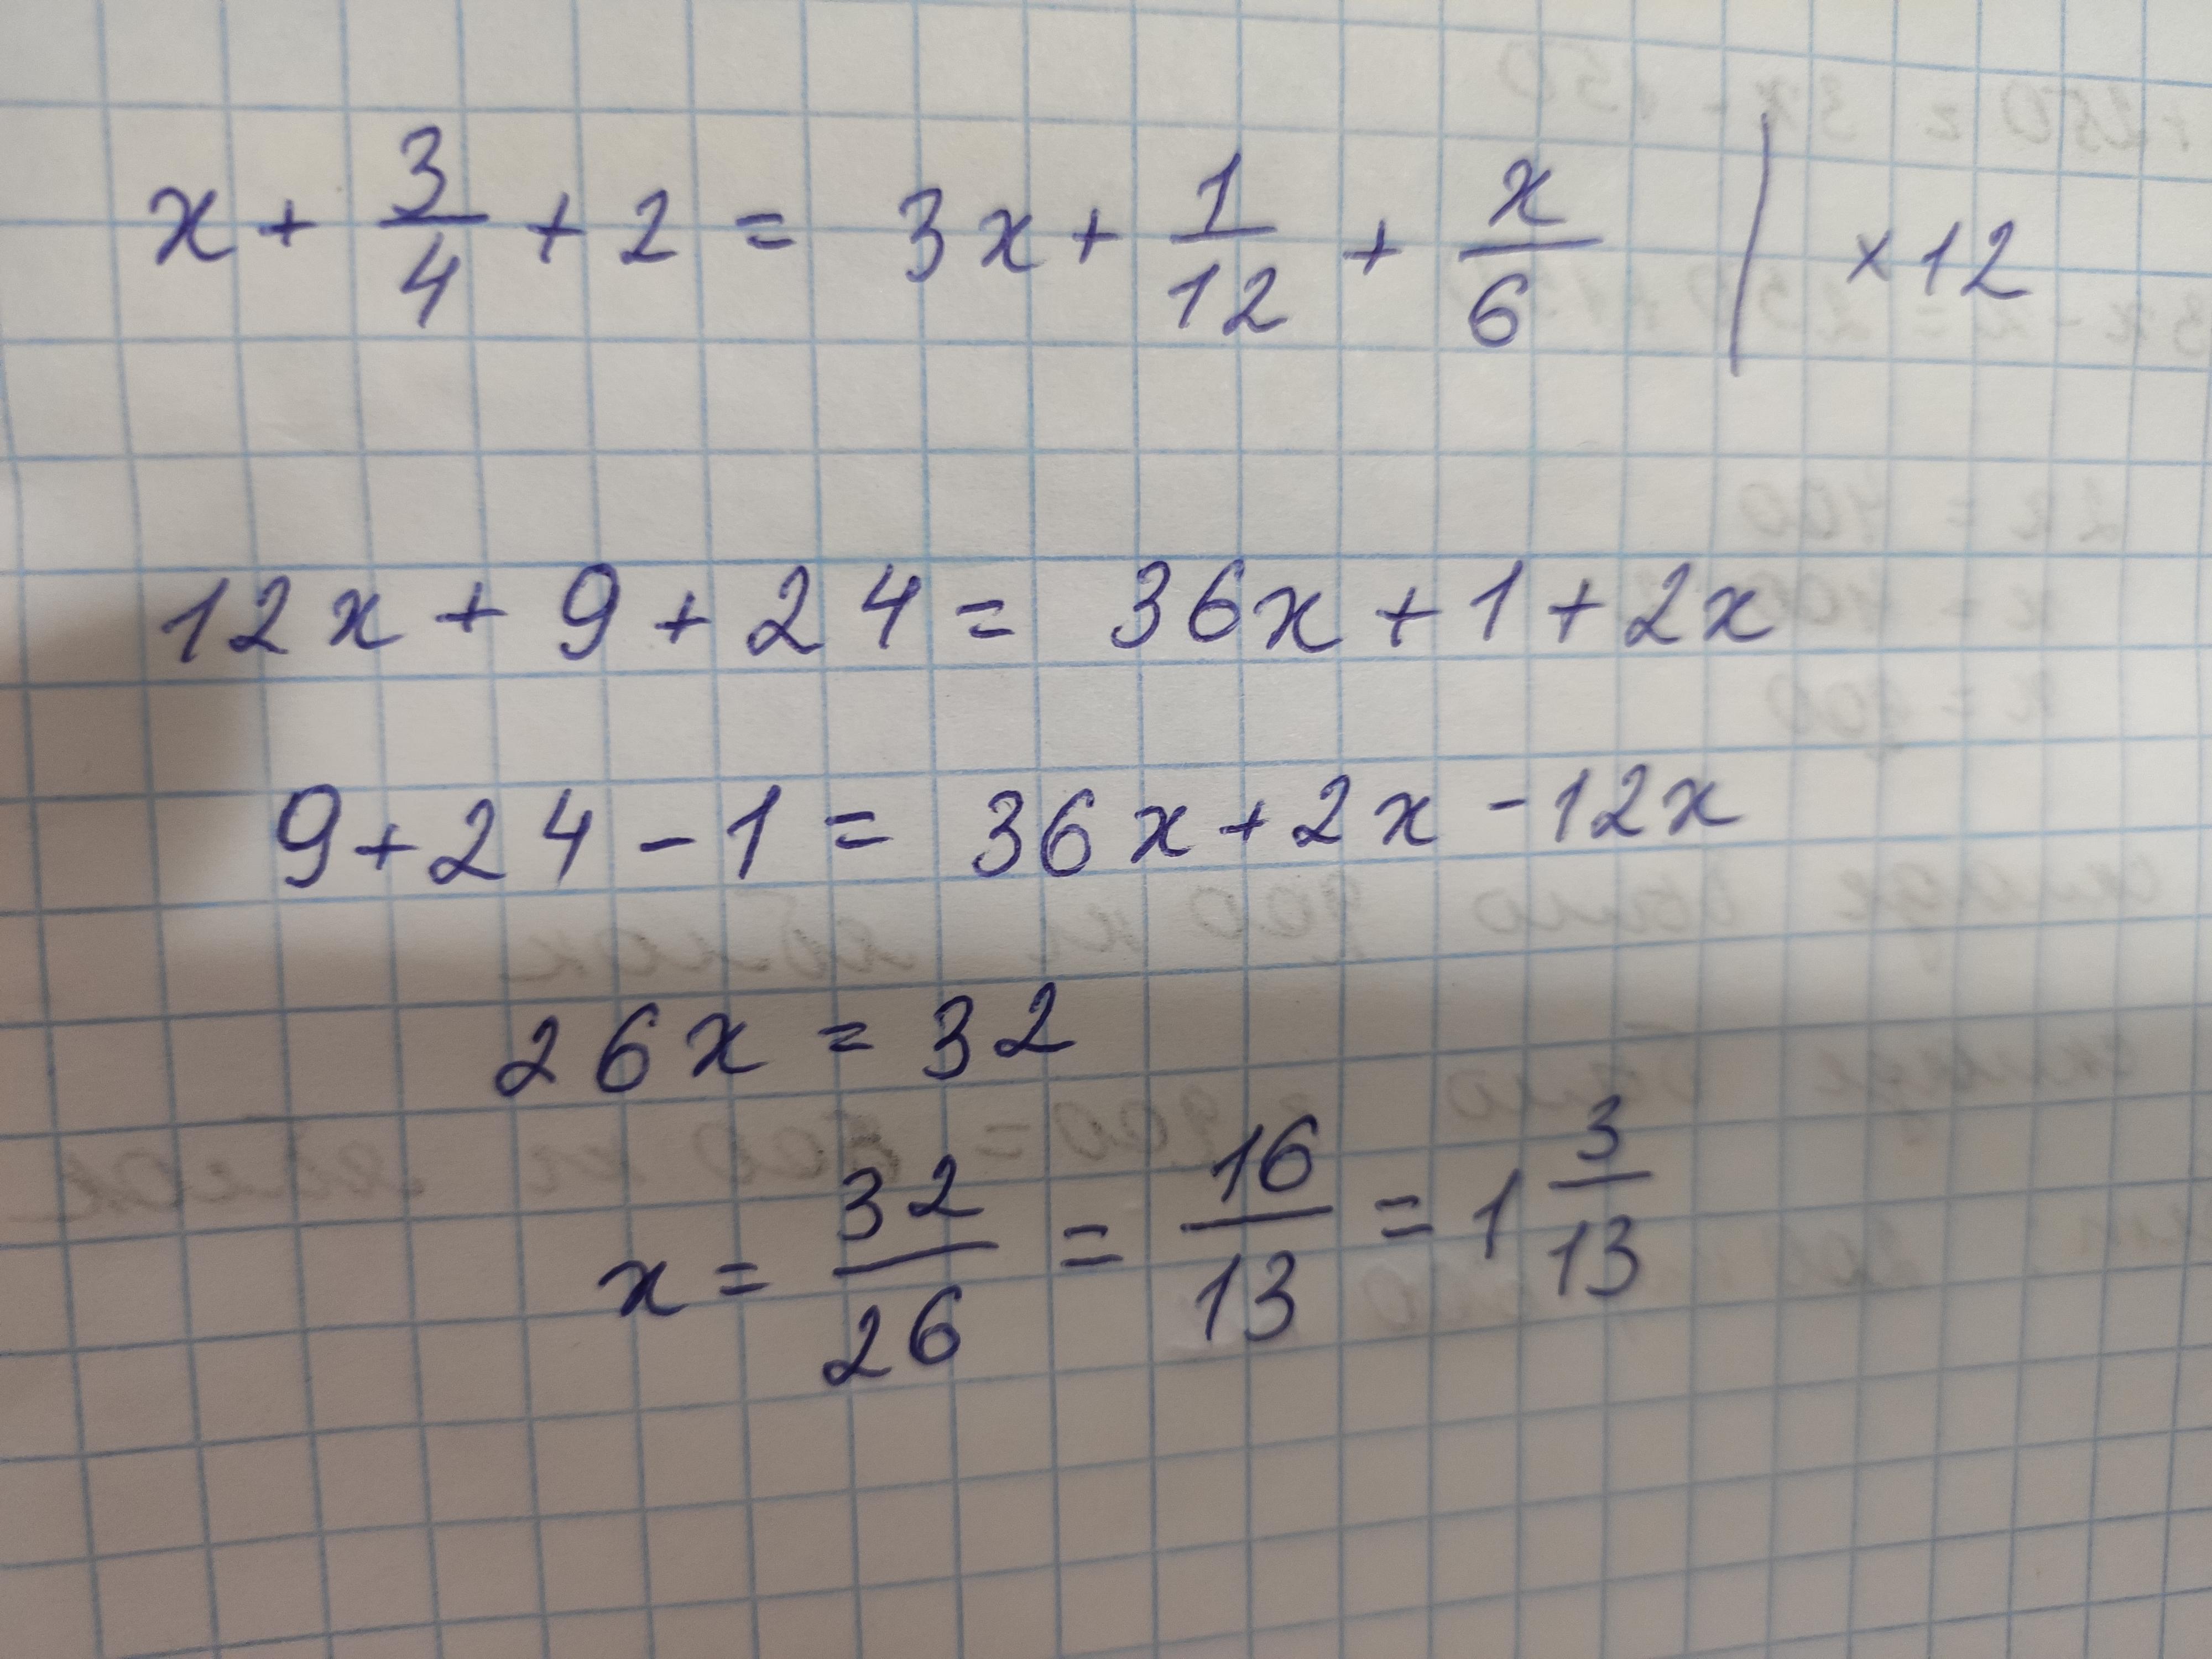 x + 3/4 + 2 = 3x + 1/12 + x/6 | × 12
12x + 9 + 24 = 36x + 1 + 2x
9 + 24 - 1 = 36x + 2x - 12x
26x = 32
x = 32/26 = 16/13 = 1 3/13